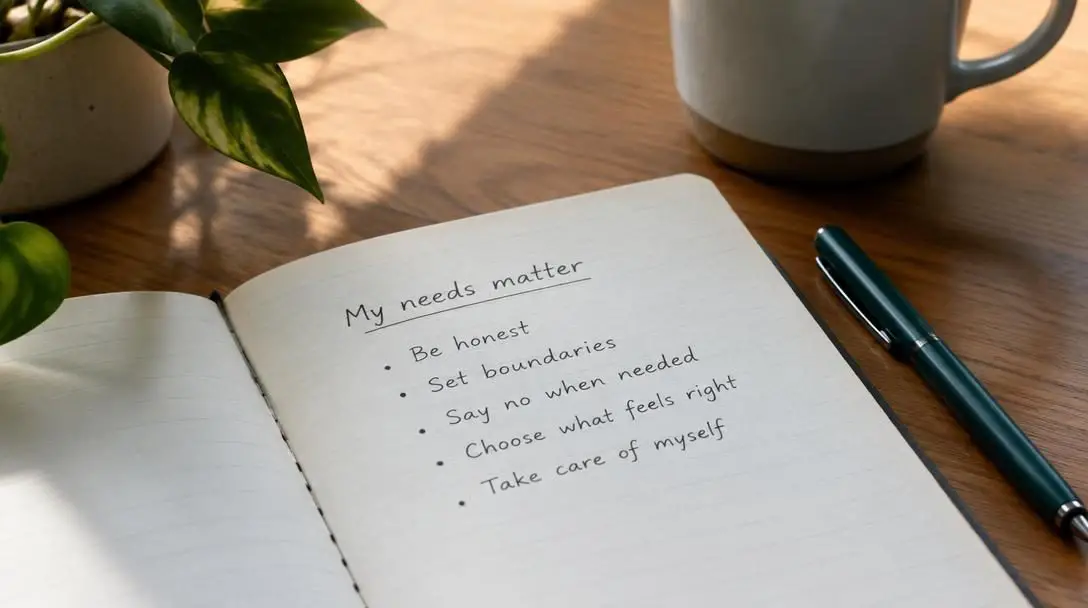 My needs matter
• Be honest
• Set boundaries
• Say no when needed
• Choose what feels right
• Take care of myself